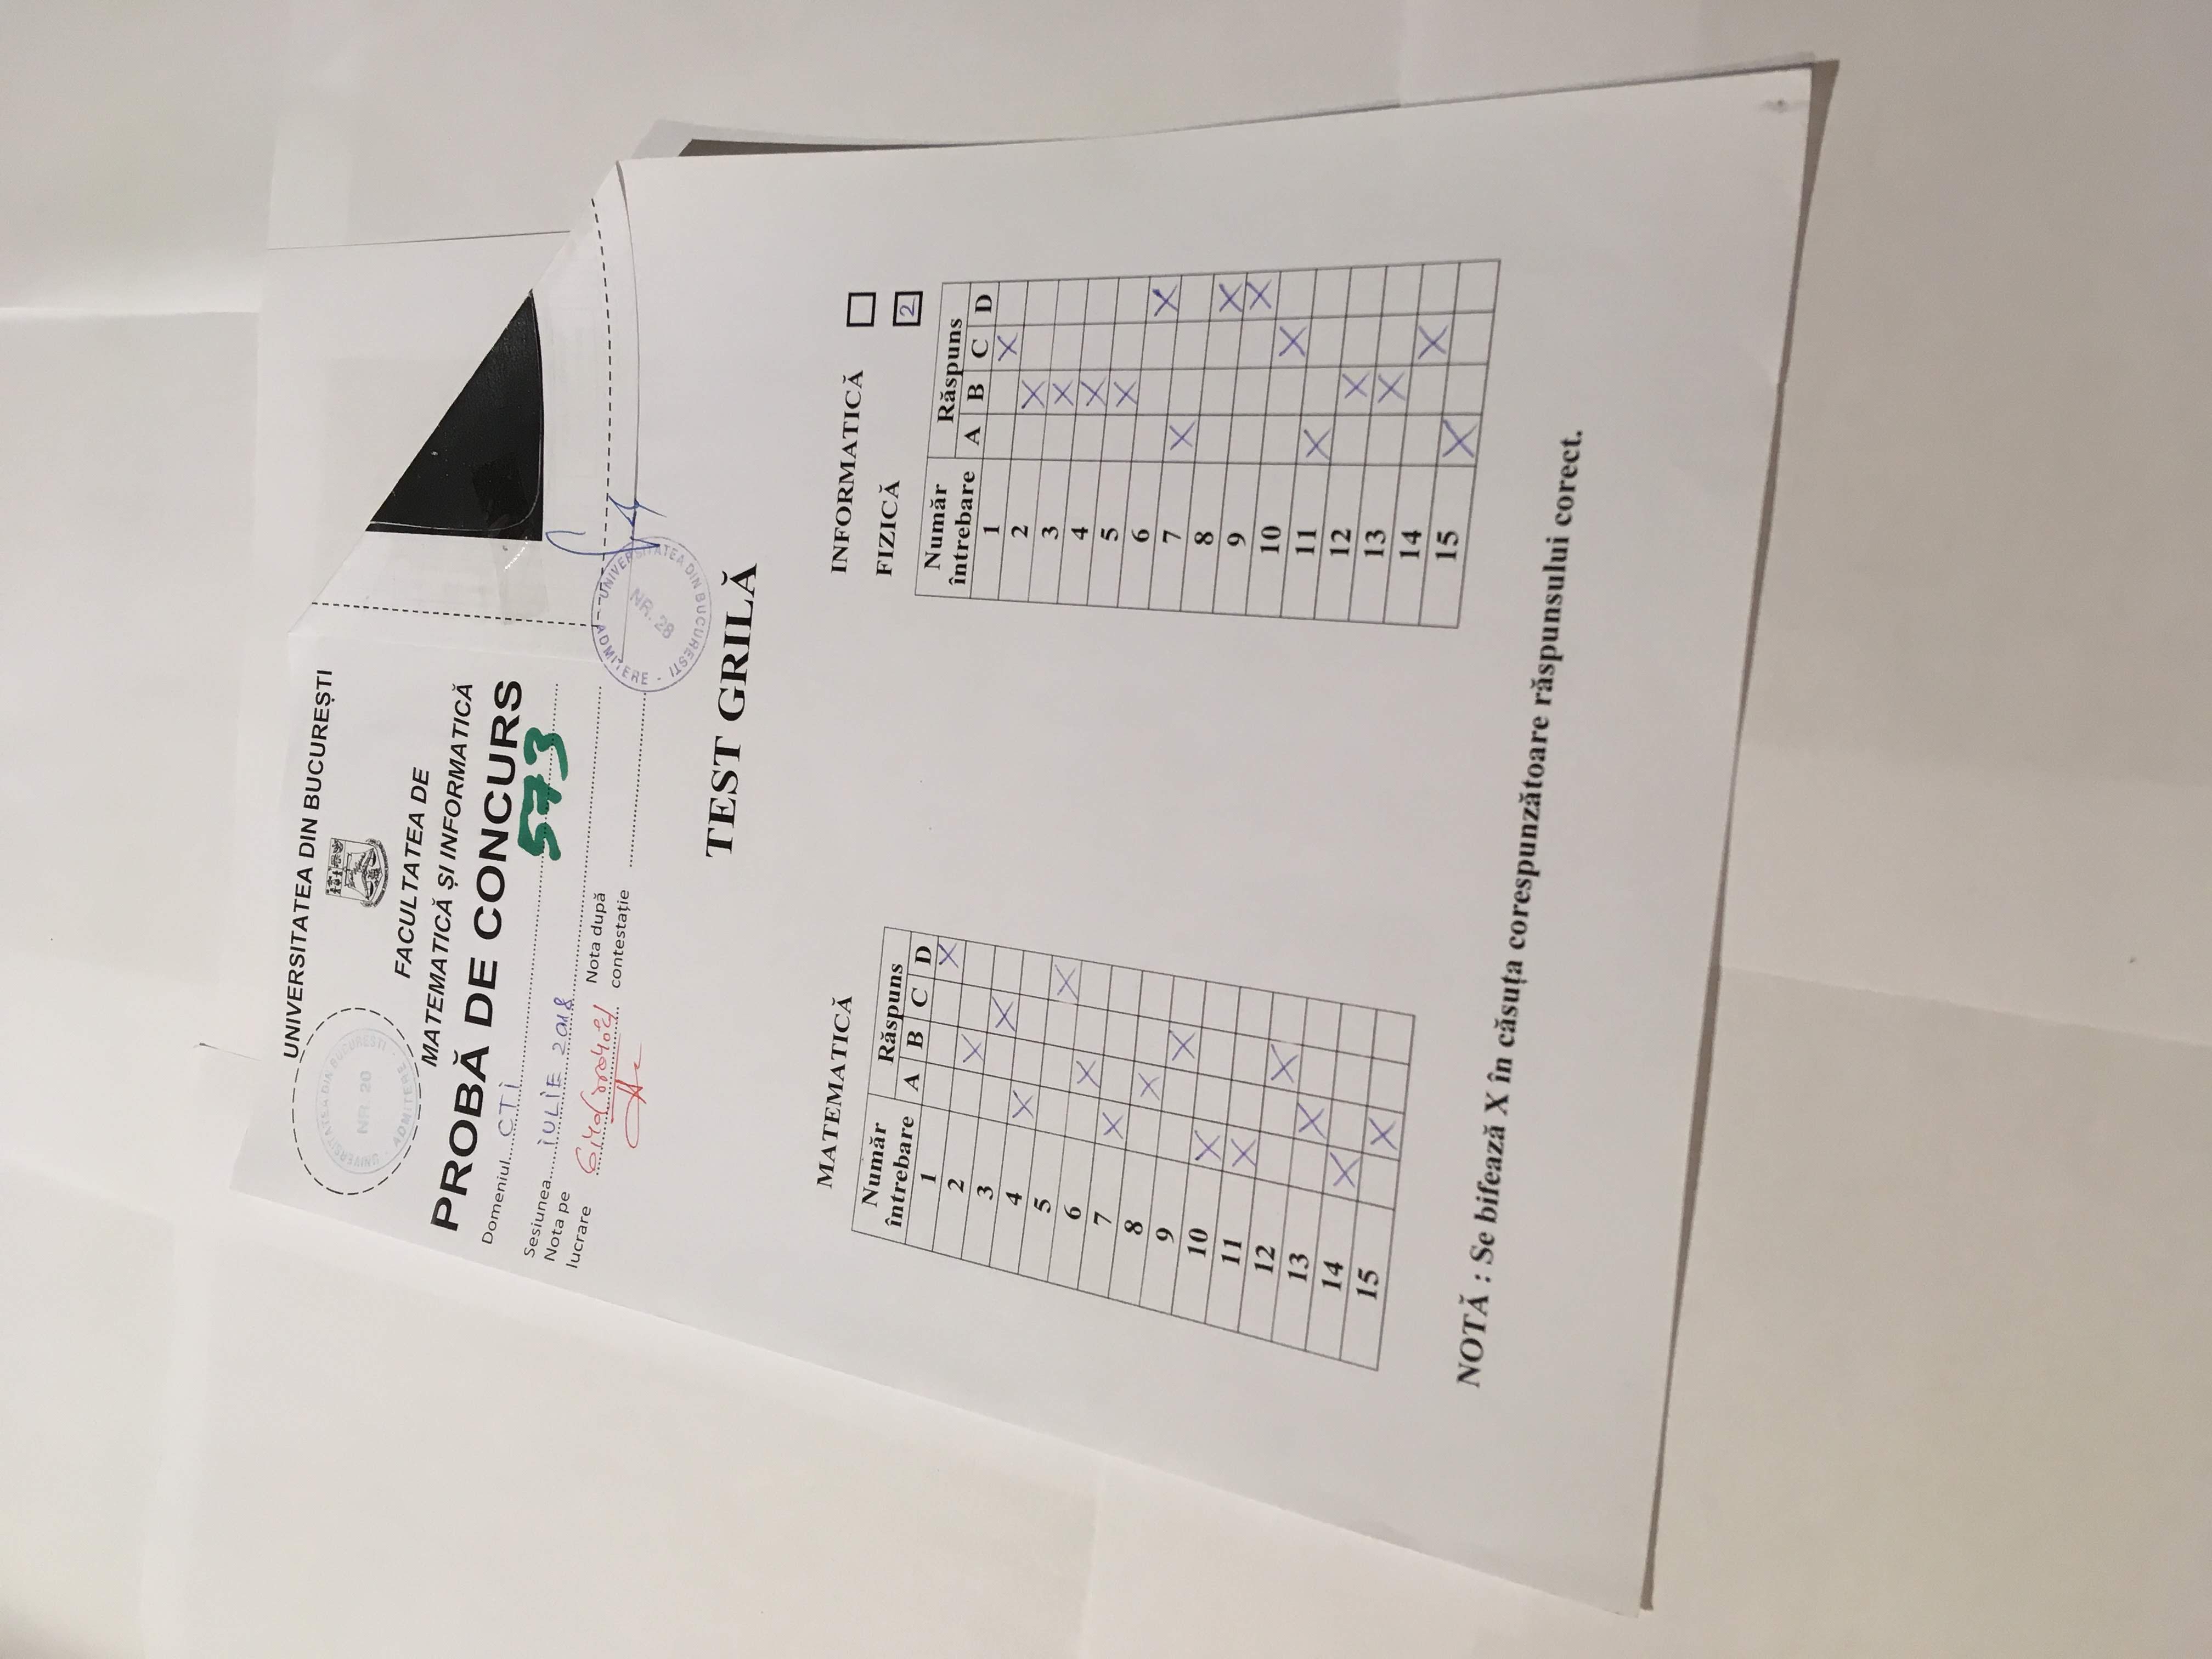 UNIVERSITATEA DIN BUCUREȘTI
UNIVERSITATEA DIN BUCURESTI
NR. 20
ADMITERE
FACULTATEA DE
MATEMATICĂ ȘI INFORMATICĂ
PROBĂ DE CONCURS
Domeniul CTi
573
Sesiunea iULiE 2018
Nota pe lucrare
Nota după contestație
UNIVERSITATEA DIN BUCURESTI
NR. 28
ADMITERE
TEST GRILĂ
MATEMATICĂ
Număr întrebare Răspuns
A B C D
1 X
2 X
3 X
4 X
5 X
6 X
7 X
8 X
9 X
10 X
11 X
12 X
13 X
14 X
15 X
INFORMATICĂ
FIZICĂ 2
Număr întrebare Răspuns
A B C D
1 X
2 X
3 X
4 X
5 X
6 X
7 X
8 X
9 X
10 X
11 X
12 X
13 X
14 X
15 X
NOTĂ : Se bifează X în căsuța corespunzătoare răspunsului corect.